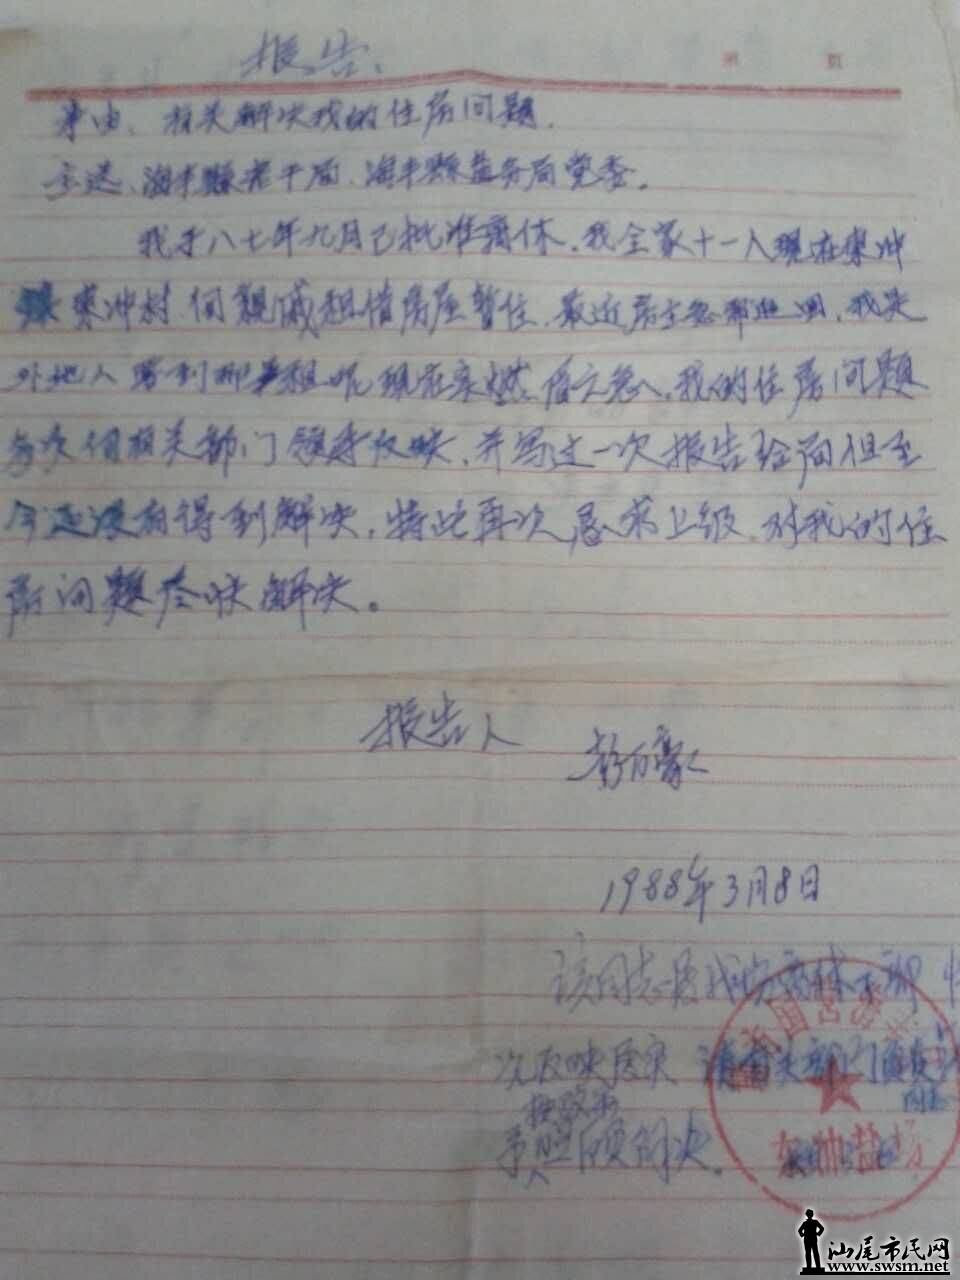 报告、
第 页
事由、有关解决我的住房问题.
主送、海丰县老干局、海丰县盐务局党委。
我于八七年九月已批准离休.我全家十一人现在东冲
东冲村向亲戚租借房屋暂住.最近房主急需退回,我是
外地人要到哪里租呢现在实燃眉之急、我的住房问题
多次向相关部门领导反映,并写过一次报告给局但至
今还没有得到解决,特此再次恳求上级.对我的住
房问题尽快解决。
报告人
彭百豪
1988年3月8日
该同志是我场离休干部
次反映属实 请有关部门
按政策
予照顾解决。
国营
盐场
汕尾市民网
www.swsm.net